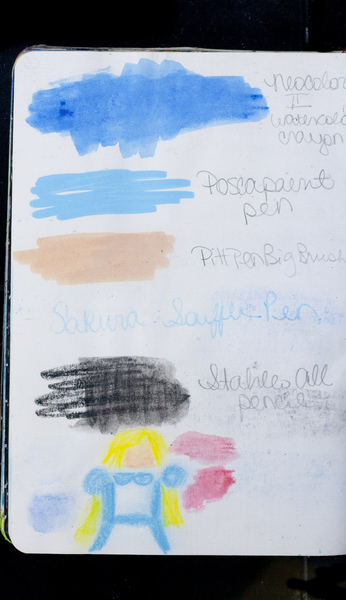 Neocolor
II
watercolor
crayon
Posca paint
pen
Pitt Pen Big Brush
Sakura Souffle Pen
Stabilo All
pencil